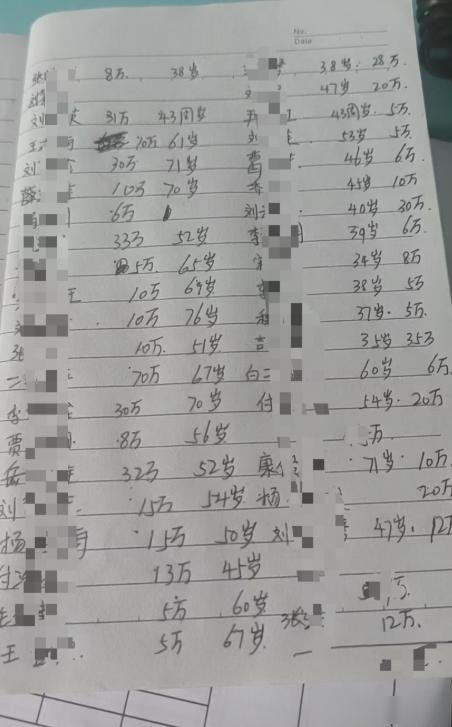 No.
Date
张 8万. 38岁 38岁. 28万.
47岁 20万.
刘 31万 43周岁 43周岁. 5万.
王 70万 61岁 刘 53岁 5万
刘 30万 71岁 曹 46岁 6万
蔡 10万 70岁 李 45岁 10万
6万 刘 40岁 30万.
33万 52岁 李 39岁 6万
5万. 65岁 宋 34岁 8万
王 10万 69岁 李 38岁 5万
刘 10万 76岁 程 37岁. 5万.
张 10万. 51岁 吉 35岁 35万
70万 67岁 白 60岁 6万
李 30万 70岁 付 54岁. 20万
贾 8万 56岁 万
岳 32万 52岁 康 71岁. 10万.
刘 15万 54岁 杨 20万
杨 15万 50岁 刘 47岁. 12万
付 13万 45岁
毛 5万 60岁 万.
王 5万 67岁 张 12万.